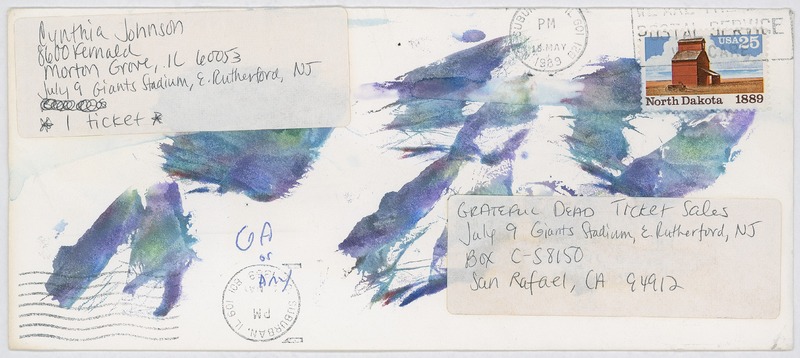 Cynthia Johnson
8600 Fernald
Morton Grove, IL 60053
July 9 Giants Stadium, E. Rutherford, NJ
* 1 ticket *
SUBURBAN, IL 601
PM
MAY
1989
POSTAL SERVICE
USA 25
North Dakota 1889
GA
or
ANY
SUBURBAN, IL 601
PM
GRATEFUL DEAD Ticket Sales
July 9 Giants Stadium, E. Rutherford, NJ
Box C-S8150
San Rafael, CA 94912